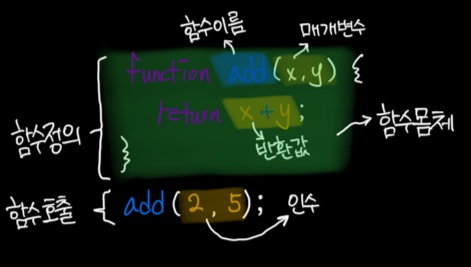 함수이름
매개변수
function add(x,y) {
return x+y;
반환값
}
함수정의
함수몸체
함수호출 { add(2, 5);
인수